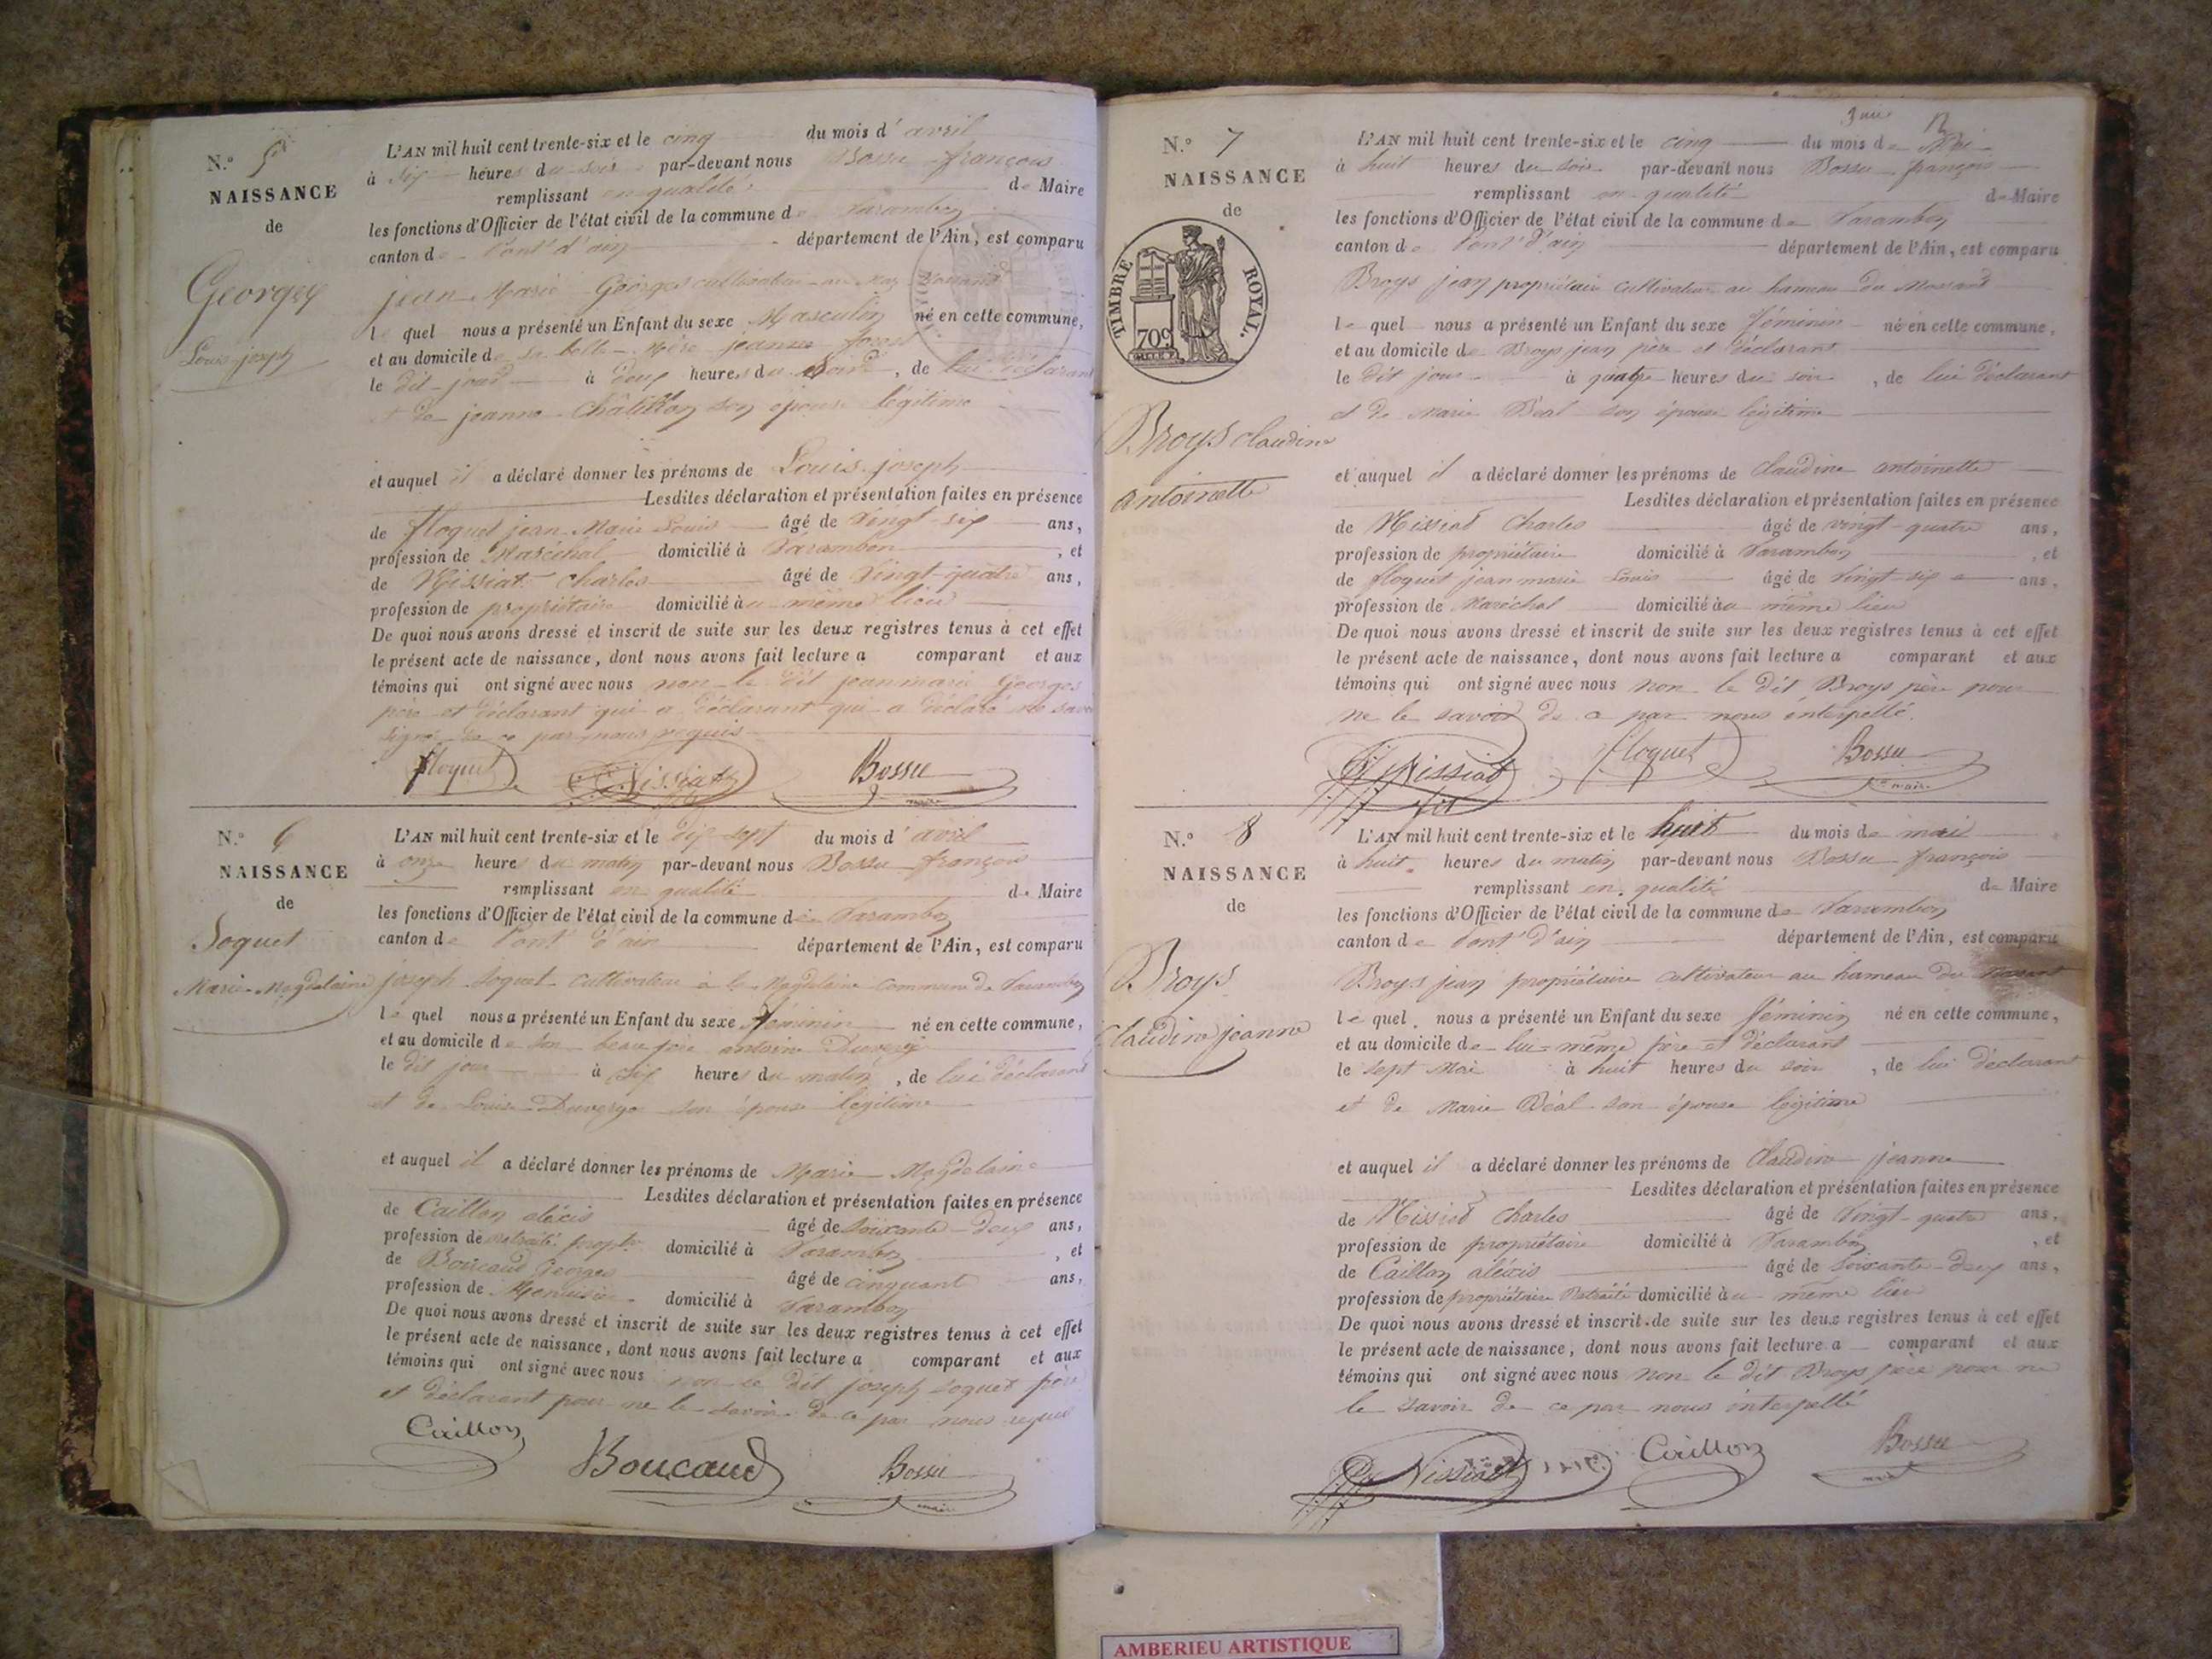 N.º 5
NAISSANCE
de
Georges
Louis joseph
L'AN mil huit cent trente-six et le cinq du mois d' avril
à six heures du soir par-devant nous Bossu françois
remplissant en qualité de Maire
les fonctions d'Officier de l'état civil de la commune de Varambon
canton de Pont d'ain département de l'Ain, est comparu
jean Marie Georges cultivateur au
le quel nous a présenté un Enfant du sexe Masculin né en cette commune,
et au domicile de sa belle Mère jeanne
le dit jour à deux heures du soir, de lui déclarant
et de jeanne Châtillon son épouse légitime
et auquel il a déclaré donner les prénoms de Louis joseph
Lesdites déclaration et présentation faites en présence
de floquet jean Marie Louis âgé de vingt-six ans,
profession de Maréchal domicilié à Varambon, et
de Missiat Charles âgé de vingt-quatre ans,
profession de propriétaire domicilié au même lieu
De quoi nous avons dressé et inscrit de suite sur les deux registres tenus à cet effet
le présent acte de naissance, dont nous avons fait lecture a comparant et aux
témoins qui ont signé avec nous non le dit jean marie Georges
père et déclarant qui a déclarant qui a déclaré ne savoir
signer de ce par nous requis
floquet Missiat Bossu
maire
N.º 6
NAISSANCE
de
Soquet
Marie Magdelaine
L'AN mil huit cent trente-six et le dix sept du mois d' avril
à onze heures du matin par-devant nous Bossu françois
remplissant en qualité de Maire
les fonctions d'Officier de l'état civil de la commune de Varambon
canton de Pont d'ain département de l'Ain, est comparu
joseph Soquet Cultivateur à la Magdelaine commune de Varambon
le quel nous a présenté un Enfant du sexe féminin né en cette commune,
et au domicile de son beau père antoine Duverge
le dit jour à six heures du matin, de lui déclarant
et de Louise Duverge son épouse légitime
et auquel il a déclaré donner les prénoms de Marie Magdelaine
Lesdites déclaration et présentation faites en présence
de Caillon alécis âgé de soixante-deux ans,
profession de retraité propre domicilié à Varambon, et
de Boucaud Georges âgé de cinquante ans,
profession de Menuisier domicilié à Varambon
De quoi nous avons dressé et inscrit de suite sur les deux registres tenus à cet effet
le présent acte de naissance, dont nous avons fait lecture a comparant et aux
témoins qui ont signé avec nous non le dit joseph Soquet père
et déclarant pour ne le savoir de ce par nous requis
Caillon Boucaud Bossu
maire
12
N.º 7
NAISSANCE
de
TIMBRE ROYAL.
709
Broys claudine
antoinette
L'AN mil huit cent trente-six et le cinq du mois de Mai
à huit heures du soir par-devant nous Bossu françois
remplissant en qualité de Maire
les fonctions d'Officier de l'état civil de la commune de Varambon
canton de Pont d'ain département de l'Ain, est comparu
Broys jean propriétaire cultivateur au hameau du
le quel nous a présenté un Enfant du sexe féminin né en cette commune,
et au domicile de Broys jean père et déclarant
le dit jour à quatre heures du soir, de lui déclarant
et de Marie Béal son épouse légitime
et auquel il a déclaré donner les prénoms de claudine antoinette
Lesdites déclaration et présentation faites en présence
de Missiat Charles âgé de vingt-quatre ans,
profession de propriétaire domicilié à Varambon, et
de floquet jean marie Louis âgé de vingt-six ans,
profession de Maréchal domicilié au même lieu
De quoi nous avons dressé et inscrit de suite sur les deux registres tenus à cet effet
le présent acte de naissance, dont nous avons fait lecture a comparant et aux
témoins qui ont signé avec nous non le dit Broys père pour
ne le savoir de ce par nous interpellé.
Missiat floquet Bossu
maire
N.º 8
NAISSANCE
de
Broys
Claudine jeanne
L'AN mil huit cent trente-six et le huit du mois de mai
à huit heures du matin par-devant nous Bossu françois
remplissant en qualité de Maire
les fonctions d'Officier de l'état civil de la commune de Varambon
canton de Pont d'ain département de l'Ain, est comparu
Broys jean propriétaire cultivateur au hameau du
le quel nous a présenté un Enfant du sexe féminin né en cette commune,
et au domicile de lui-même père et déclarant
le sept Mai à huit heures du soir, de lui déclarant
et de Marie Béal son épouse légitime
et auquel il a déclaré donner les prénoms de Claudine jeanne
Lesdites déclaration et présentation faites en présence
de Missiat Charles âgé de vingt-quatre ans,
profession de propriétaire domicilié à Varambon, et
de Caillon alécis âgé de soixante-deux ans,
profession de propriétaire Retraité domicilié au même lieu
De quoi nous avons dressé et inscrit de suite sur les deux registres tenus à cet effet
le présent acte de naissance, dont nous avons fait lecture a comparant et aux
témoins qui ont signé avec nous non le dit Broys père pour ne
le savoir de ce par nous interpellé
Missiat Caillon Bossu
maire
AMBERIEU ARTISTIQUE